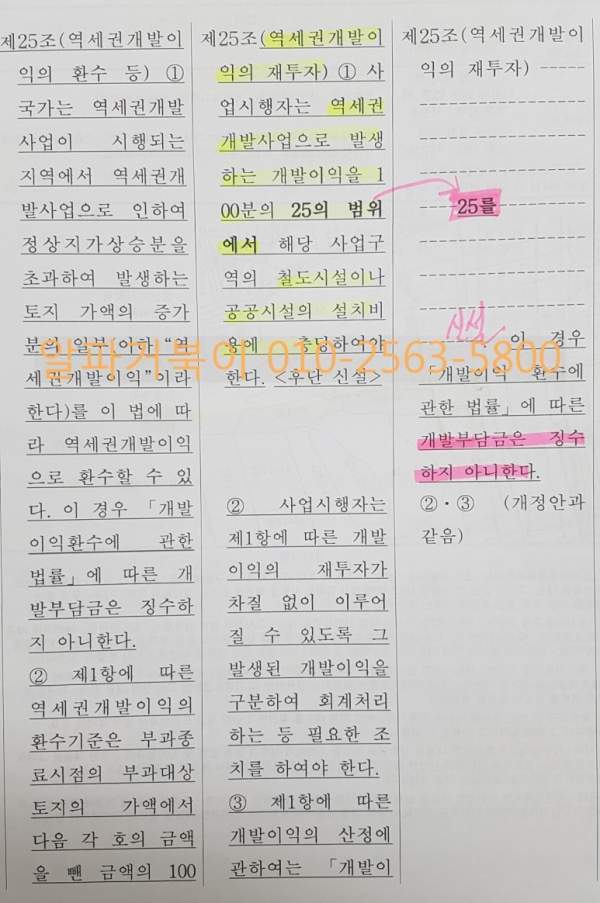 제25조(역세권개발이
익의 환수 등) ①
국가는 역세권개발
사업이 시행되는
지역에서 역세권개
발사업으로 인하여
정상지가상승분을
초과하여 발생하는
토지 가액의 증가
분의 일부(이하 "역
세권개발이익"이라
한다)를 이 법에 따
라 역세권개발이익
으로 환수할 수 있
다. 이 경우 「개발
이익환수에 관한
법률」에 따른 개
발부담금은 징수하
지 아니한다.
② 제1항에 따른
역세권개발이익의
환수기준은 부과종
료시점의 부과대상
토지의 가액에서
다음 각 호의 금액
을 뺀 금액의 100
제25조(역세권개발이
익의 재투자) ① 사
업시행자는 역세권
개발사업으로 발생
하는 개발이익을 1
00분의 25의 범위
에서 해당 사업구
역의 철도시설이나
공공시설의 설치비
용에 충당하여야
한다. <후단 신설>
② 사업시행자는
제1항에 따른 개발
이익의 재투자가
차질 없이 이루어
질 수 있도록 그
발생된 개발이익을
구분하여 회계처리
하는 등 필요한 조
치를 하여야 한다.
③ 제1항에 따른
개발이익의 산정에
관하여는 「개발이
제25조(역세권개발이
익의 재투자) -----
---------------
---------------
---------------
---25를---------
---------------
---------------
---------------
신설
------. 이 경우
「개발이익 환수에
관한 법률」에 따른
개발부담금은 징수
하지 아니한다.
②·③ (개정안과
같음)
알파거북이 010-2563-5800